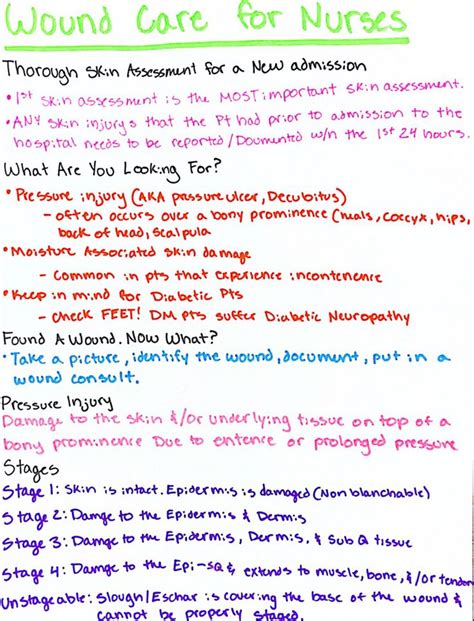 Wound Care for Nurses
Thorough Skin Assessment for a New admission
• 1st skin assessment is the MOST important skin assessment.
• ANY skin injurys that the Pt had prior to admission to the
hospital needs to be reported/Doumented w/n the 1st 24 hours.
What Are You Looking For?
• Pressure injury (AKA prassure ulcer, Decubitus)
- often occurs over a bony prominence (heals, coccyx, hips,
back of head, scalpula)
• Moisture Associated skin damage
- Common in pts that experience incontenence
• Keep in mind for Diabetic Pts
- check FEET! DM pts suffer Diabetic Neuropathy
Found A Wound. Now What?
• Take a picture, identify the wound, document, put in a
wound consult.
Pressure Injury
Damage to the skin &/or underlying tissue on top of a
bony prominence Due to entence or prolonged pressure
Stages
Stage 1: Skin is intact. Epidermis is damaged (Non blanchable)
Stage 2: Damge to the Epidermis & Dermis
Stage 3: Damge to the Epidermis, Dermis, & Sub Q tissue
Stage 4: Damge to the Epi-SQ & extends to muscle, bone, &/or tendon
Unstageable: Slough/Eschar is covering the base of the wound &
cannot be properly staged.